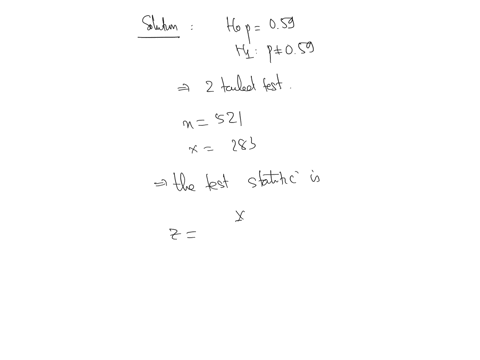 Solution : H0 p = 0.59
H1 : p ≠ 0.59
⇒ 2 tailed test.
n = 521
x = 283
⇒ the test statitic is
x
z =